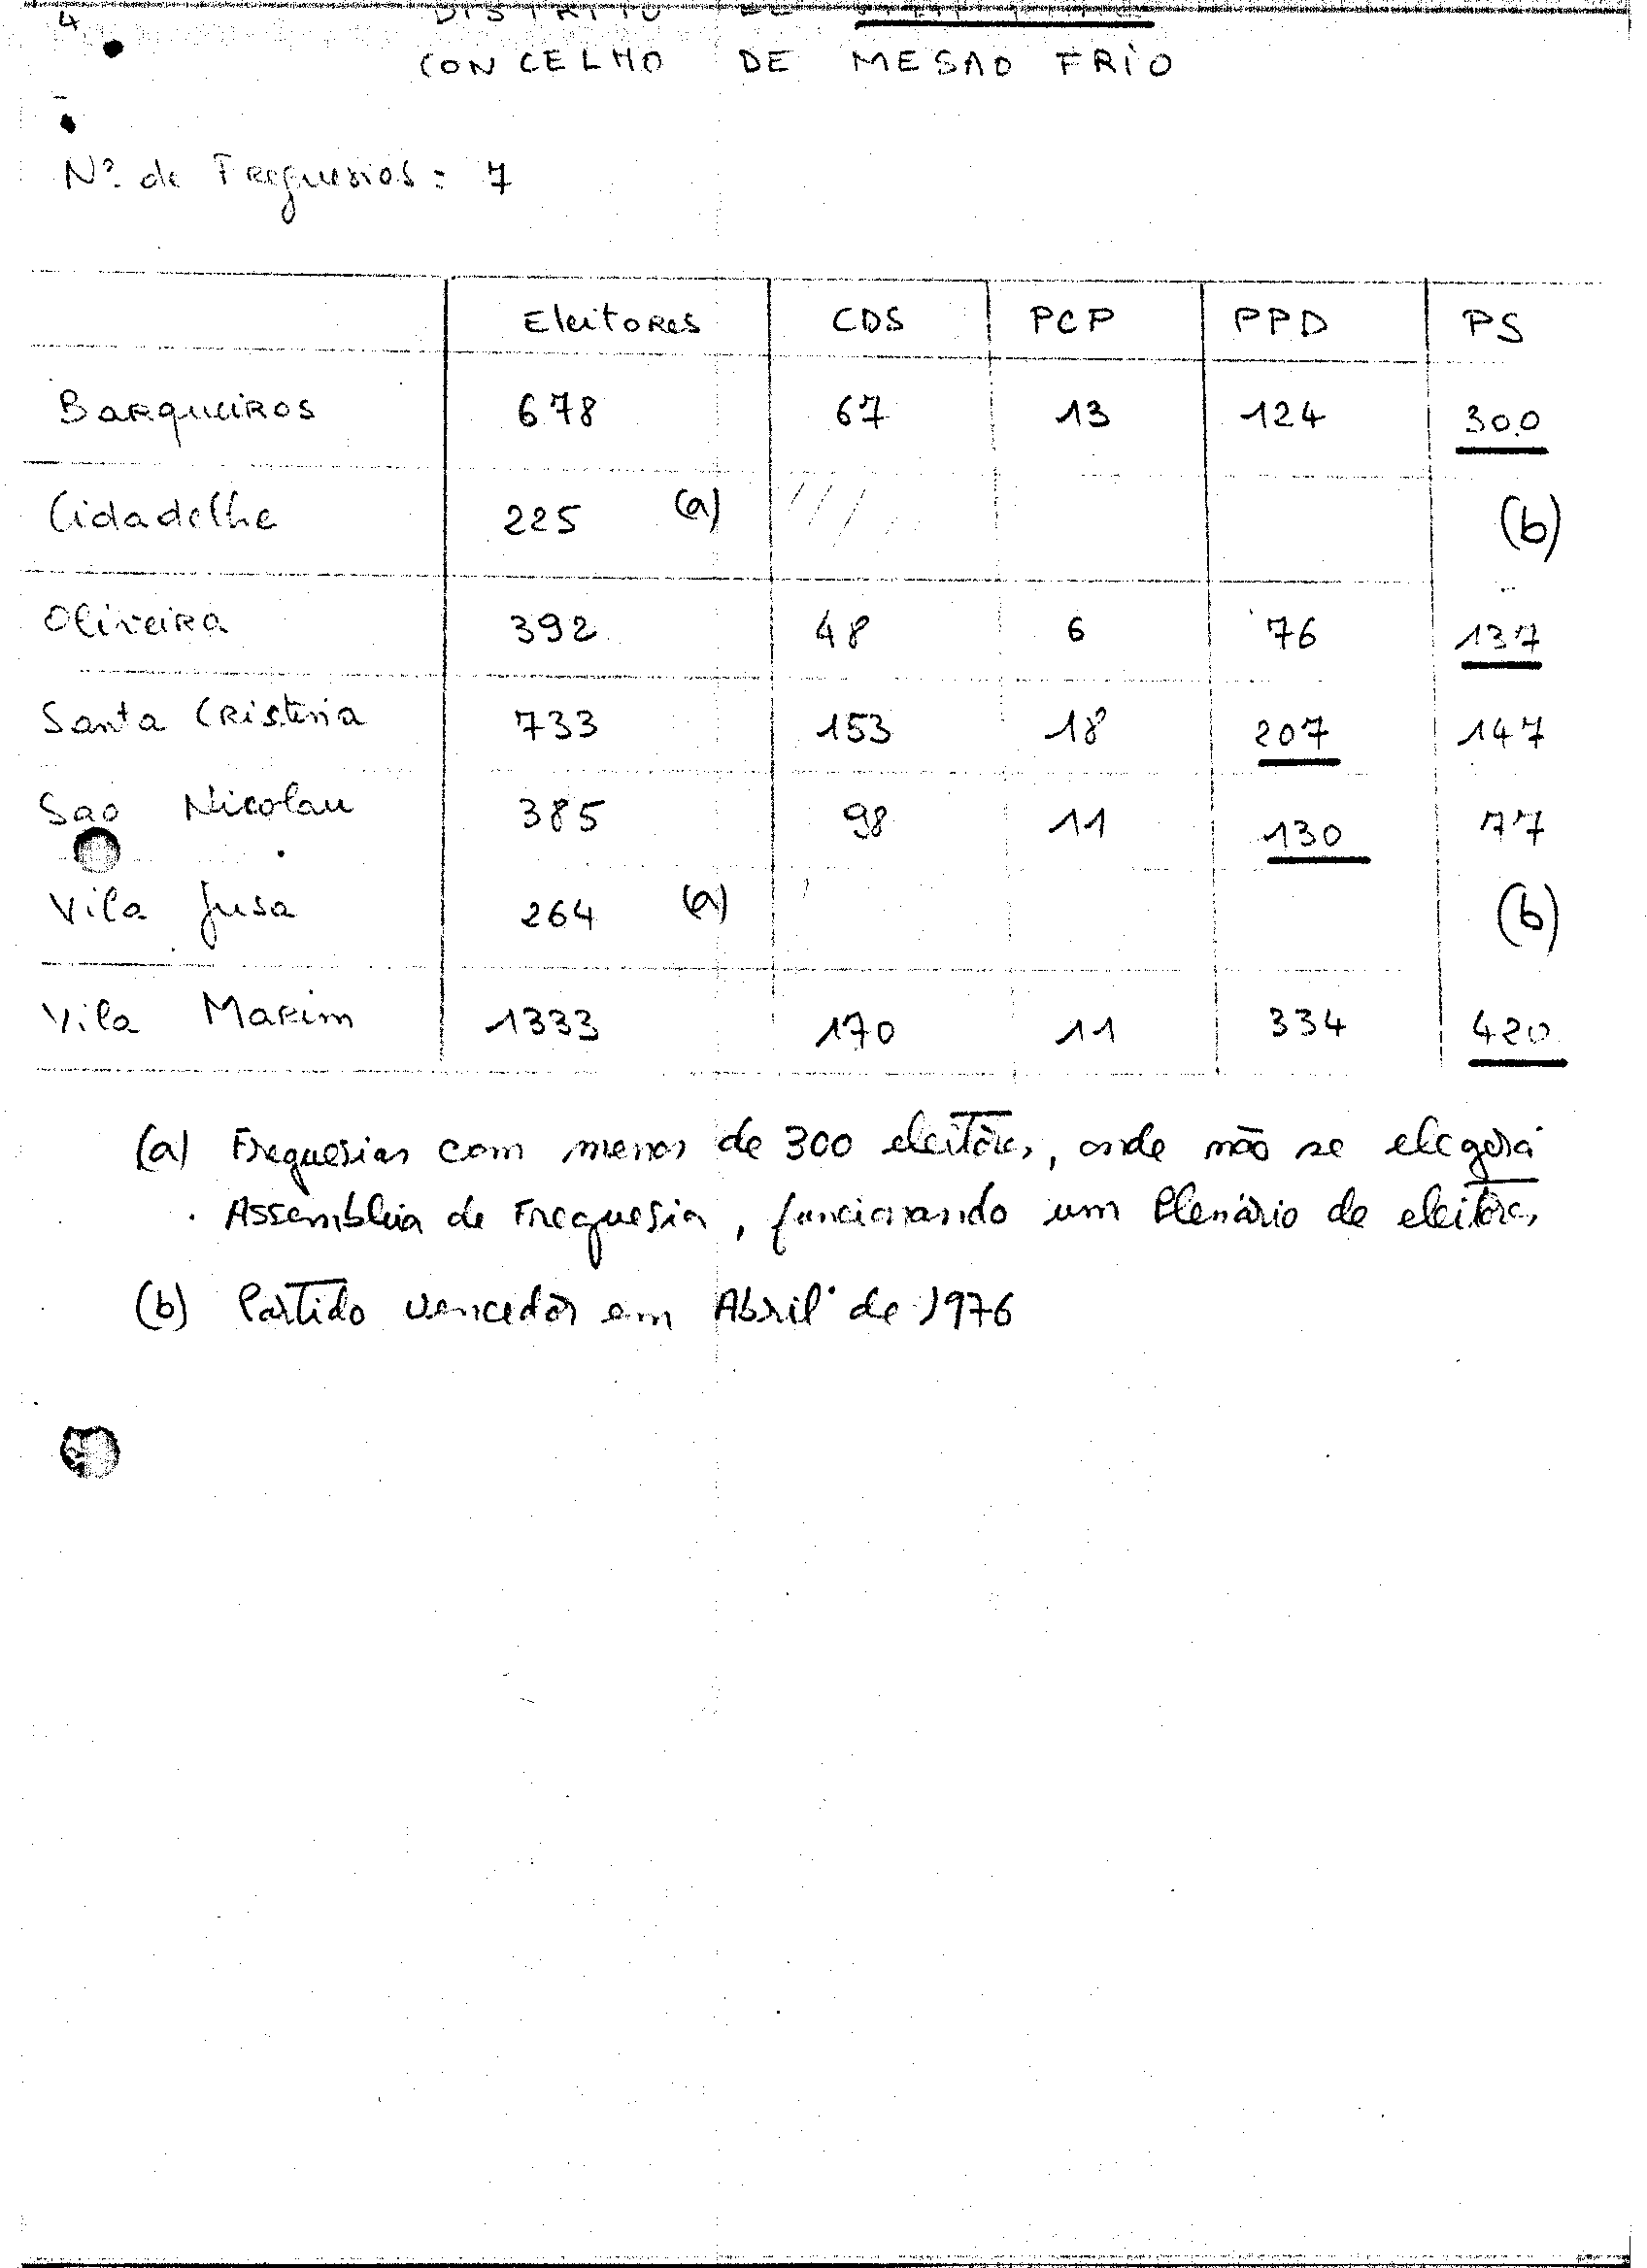 4
DISTRITO DE
CONCELHO DE MESAO FRIO
Nº de Freguesias = 7
Eleitores CDS PCP PPD PS
Barqueiros 678 67 13 124 300
Cidadelhe 225 (a) (b)
Oliveira 392 48 6 76 137
Santa Cristina 733 153 18 207 147
Sao Nicolau 385 98 11 130 77
Vila Jusa 264 (a) (b)
Vila Marim 1333 170 11 334 420
(a) Freguesias com menos de 300 eleitores, onde não se elegerá
Assembleia de Freguesia, funcionando um Plenário de eleitores
(b) Partido vencedor em Abril de 1976